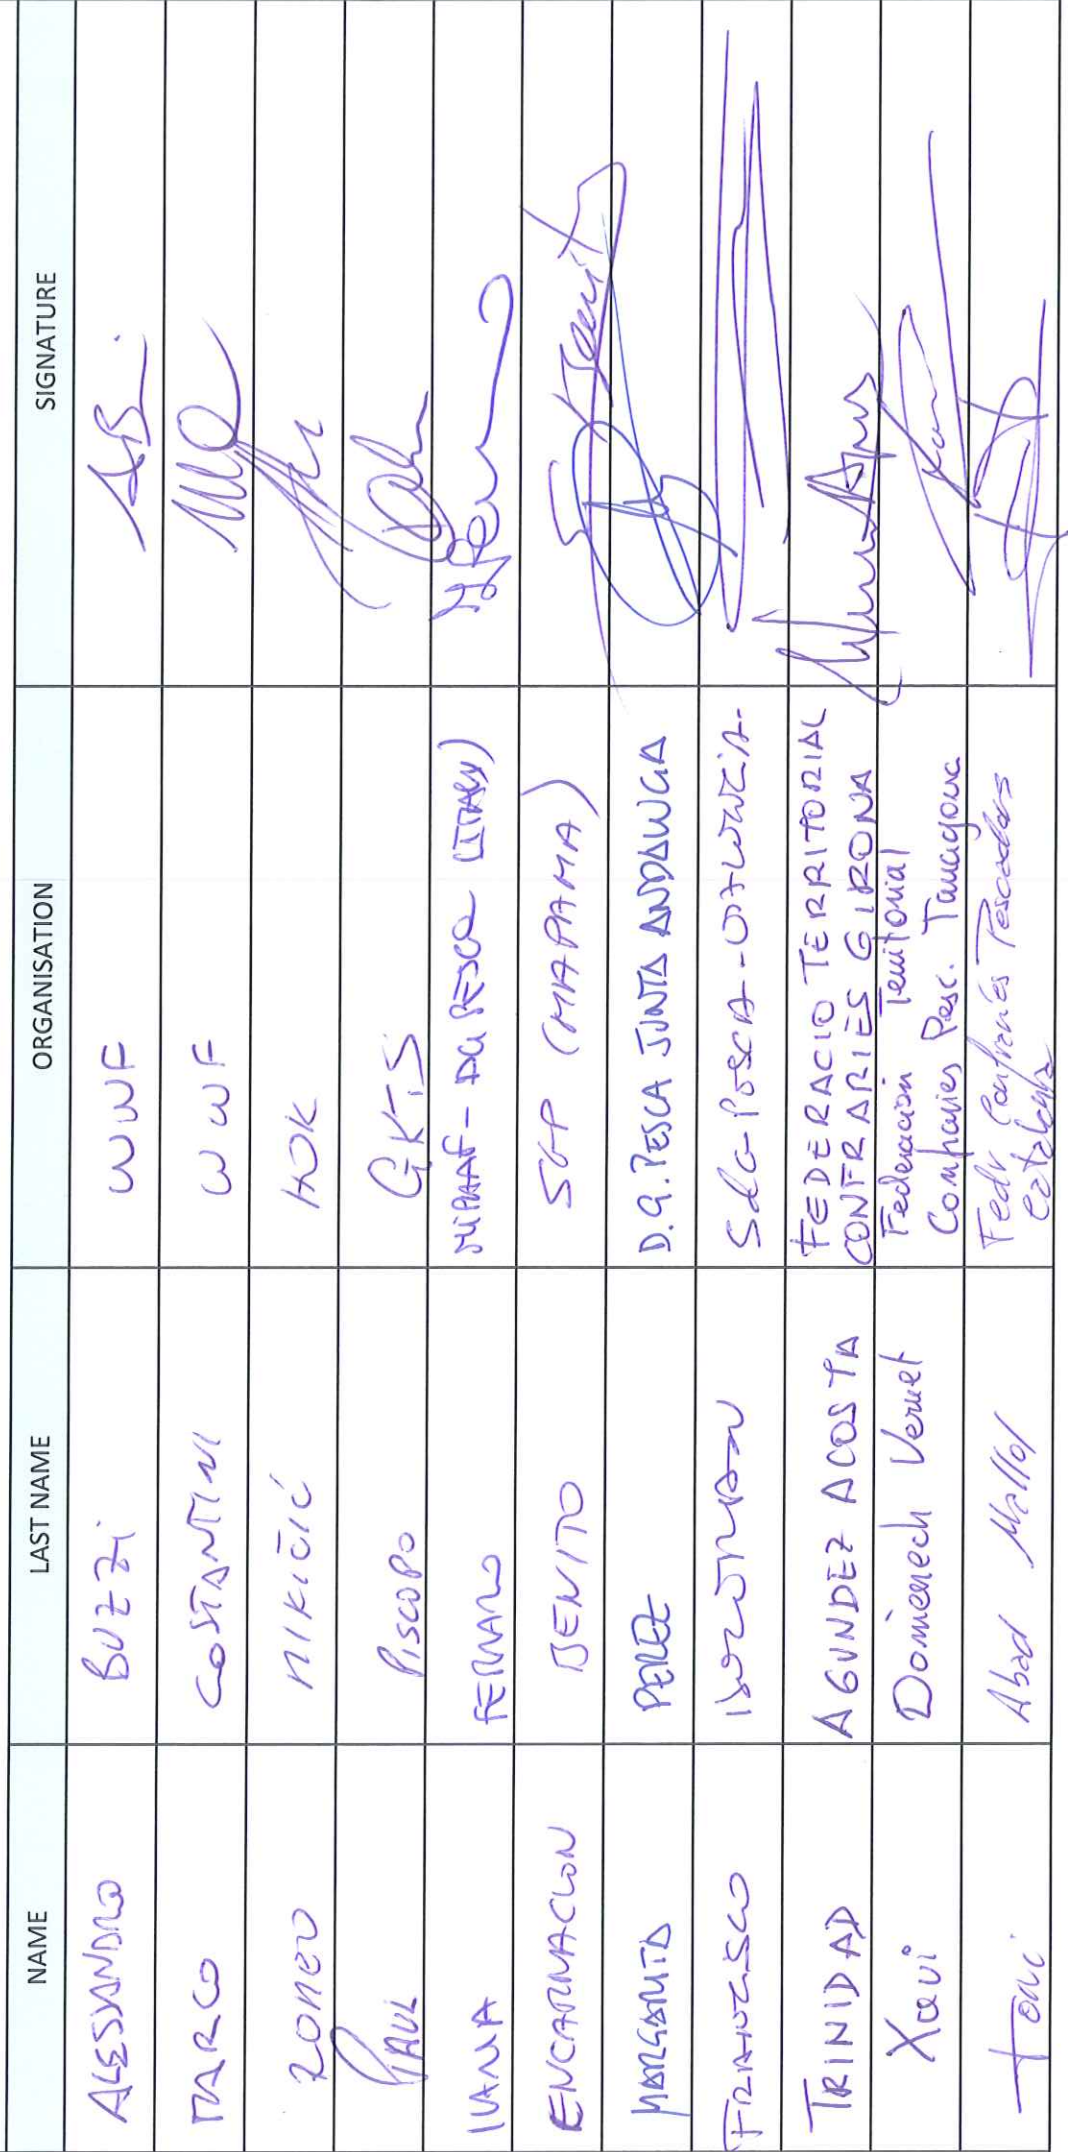 NAME LAST NAME ORGANISATION SIGNATURE
ALESSANDRO BUZZI WWF
MARCO COSTANTINI WWF
ROMEO NIKIČIĆ HOK
PAUL PISCOPO GKTS
IVANA FERRARO MIPAAF - DG PESCA (ITALY)
ENCARNACION BENITO SGP (MAPAMA)
MARGARITA PEREZ D.G. PESCA JUNTA ANDALUCIA
FRANCISCO
TRINIDAD AGUNDEZ ACOSTA FEDERACIO TERRITORIAL
CONFRARIES GIRONA
Xavi Domenech Vernet Federación Territorial
Confraries Pesc. Tarragona
Toni Abad Mallol